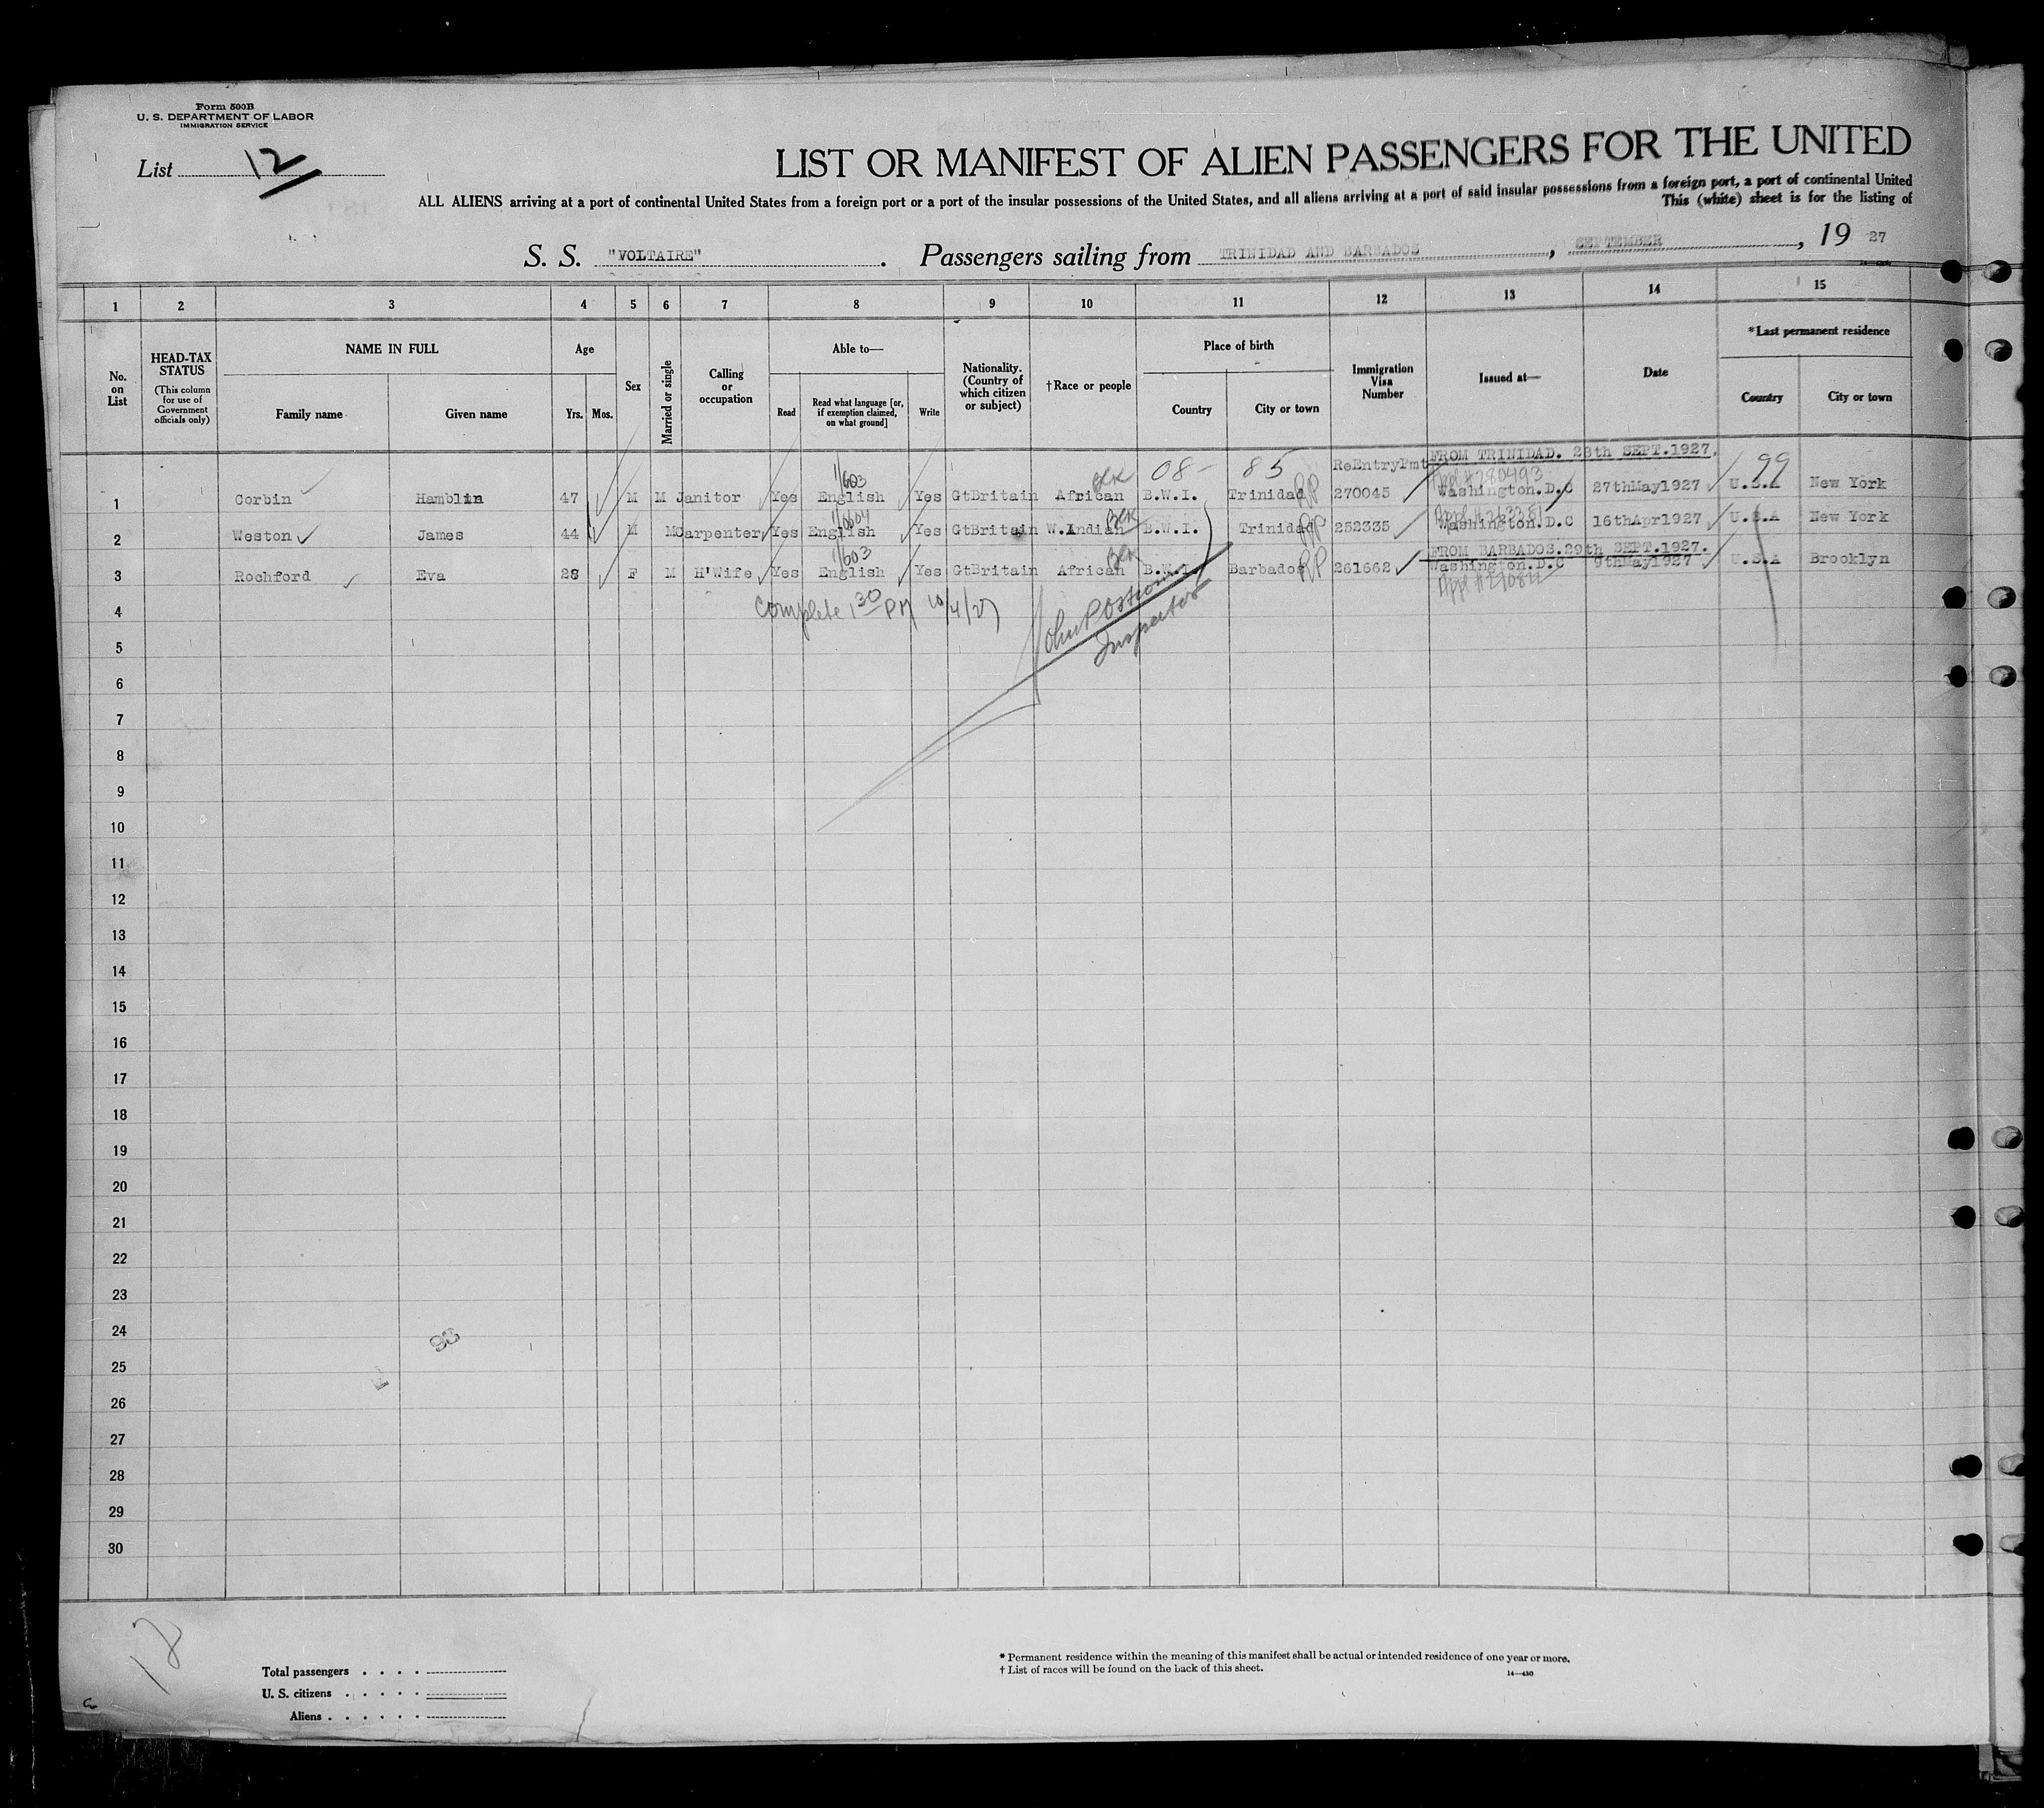 Form 500B
U. S. DEPARTMENT OF LABOR
IMMIGRATION SERVICE
List 12
LIST OR MANIFEST OF ALIEN PASSENGERS FOR THE UNITED
ALL ALIENS arriving at a port of continental United States from a foreign port or a port of the insular possessions of the United States, and all aliens arriving at a port of said insular possessions from a foreign port, a port of continental United
This (white) sheet is for the listing of
S. S. "VOLTAIRE". Passengers sailing from TRINIDAD AND BARBADOS, SEPTEMBER, 19 27
1 2 3 4 5 6 7 8 9 10 11 12 13 14 15
No. on List
HEAD-TAX STATUS
(This column for use of Government officials only)
NAME IN FULL
Family name Given name
Age
Yrs. Mos.
Sex
Married or single
Calling or occupation
Able to—
Read
Read what language [or, if exemption claimed, on what ground]
Write
Nationality. (Country of which citizen or subject)
† Race or people
Place of birth
Country City or town
Immigration Visa Number
Issued at—
Date
* Last permanent residence
Country City or town
FROM TRINIDAD. 28th SEPT.1927.
1/603 BLK 08- 85 ReEntryPmt Appl #280493 99
1 Corbin Hamblin 47 M M Janitor Yes English Yes GtBritain African B.W.I. Trinidad RP 270045 Washington.D.C 27thMay1927 U.S.A New York
BLK
2 Weston James 44 M M Carpenter Yes English Yes GtBritain W.Indian B.W.I. Trinidad RP 252335 Washington.D.C 16thApr1927 U.S.A New York
FROM BARBADOS.29th SEPT.1927.
1/603 BLK
3 Rochford Eva 28 F M H'Wife Yes English Yes GtBritain African B.W.I. Barbados RP 261662 Washington.D.C 9thMay1927 U.S.A Brooklyn
4 Complete 1 30 PM 10/4/27
Inspector
5
6
7
8
9
10
11
12
13
14
15
16
17
18
19
20
21
22
23
24
98
25
26
27
28
29
30
Total passengers
U. S. citizens
Aliens
* Permanent residence within the meaning of this manifest shall be actual or intended residence of one year or more.
† List of races will be found on the back of this sheet.
14—430